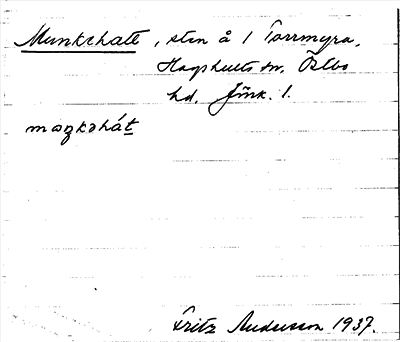 Munkehatt, sten å 1 Torrmyra,
Hagshults sn. Östbo
hd. Jönk. l.
mɷŋkəhát
Fritz Andersson 1937.